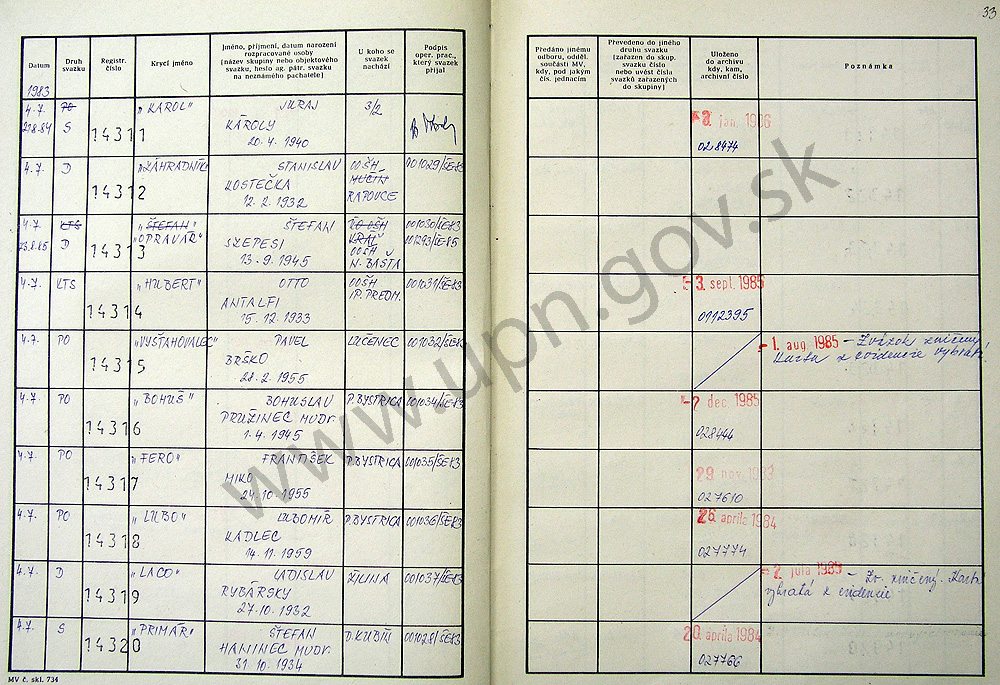 33
Datum
Druh svazku
Registr. číslo
Krycí jméno
Jméno, příjmení, datum narození rozpracované osoby (název skupiny nebo objektového svazku, heslo ag. pátr. svazku na neznámého pachatele)
U koho se svazek nachází
Podpis oper. prac., který svazek přijal
Předáno jinému odboru, odděl. součásti MV, kdy, pod jakým čís. jednacím
Převedeno do jiného druhu svazku (zařazen do skup. svazku číslo nebo uvést čísla svazků zařazených do skupiny)
Uloženo do archivu kdy, kam, archivní číslo
Poznámka
1983
4.7. PO "KAROL" JURAJ 3/2
21.8.84 S 14311 KÁROLY
20.4.1940
3. jan. 1986
028474
4.7. D "ZÁHRADNÍK" STANISLAV OOŠH 001029/ŠE-83
14312 KOSTEČKA MUČÍN
12.2.1932 RAPOVCE
4.7. KTS "ŠTEFAN" ŠTEFAN OOŠH 001030/ŠE-83
23.8.85 D 14313 "OPRAVÁR" SZEPESI KRAĽ 001293/ŠE-85
OOŠH
13.9.1945 N. BAŠTA
4.7. KTS "HUBERT" OTTO OOŠH 001031/ŠE-83
14314 ANTALFI IP. PREDM.
15.12.1933
3. sept. 1985
0112395
4.7. PO "VYSŤAHOVALEC" PAVEL LUČENEC 001032/ŠE-83
14315 BRŠKO
28.2.1955
1. aug. 1985 - Zväzok zničený.
Karta z evidencie vybratá
4.7. PO "BOHUŠ" BOHUSLAV P. BYSTRICA 001034/ŠE-83
14316 PRUŽINEC MUDr.
1.4.1945
2 dec. 1985
028444
4.7. PO "FERO" FRANTIŠEK P. BYSTRICA 001035/ŠE-83
14317 MIKO
24.10.1955
29 nov. 1983
027610
4.7. PO "ĽUBO" ĽUBOMÍR P. BYSTRICA 001036/ŠE-83
14318 KADLEC
14.11.1959
26 apríla 1984
027774
4.7. D "LACO" LADISLAV ŽILINA 001037/ŠE-83
14319 RYBÁRSKY
27.10.1932
2. júla 1985 - Zv. zničený. Karta
vybratá z evidencie
4.7. S "PRIMÁR" ŠTEFAN D. KUBÍN 001028/ŠE-83
14320 HANINEC MUDr.
31.10.1934
20 apríla 1984
027766
MV č. skl. 734
www.upn.gov.sk